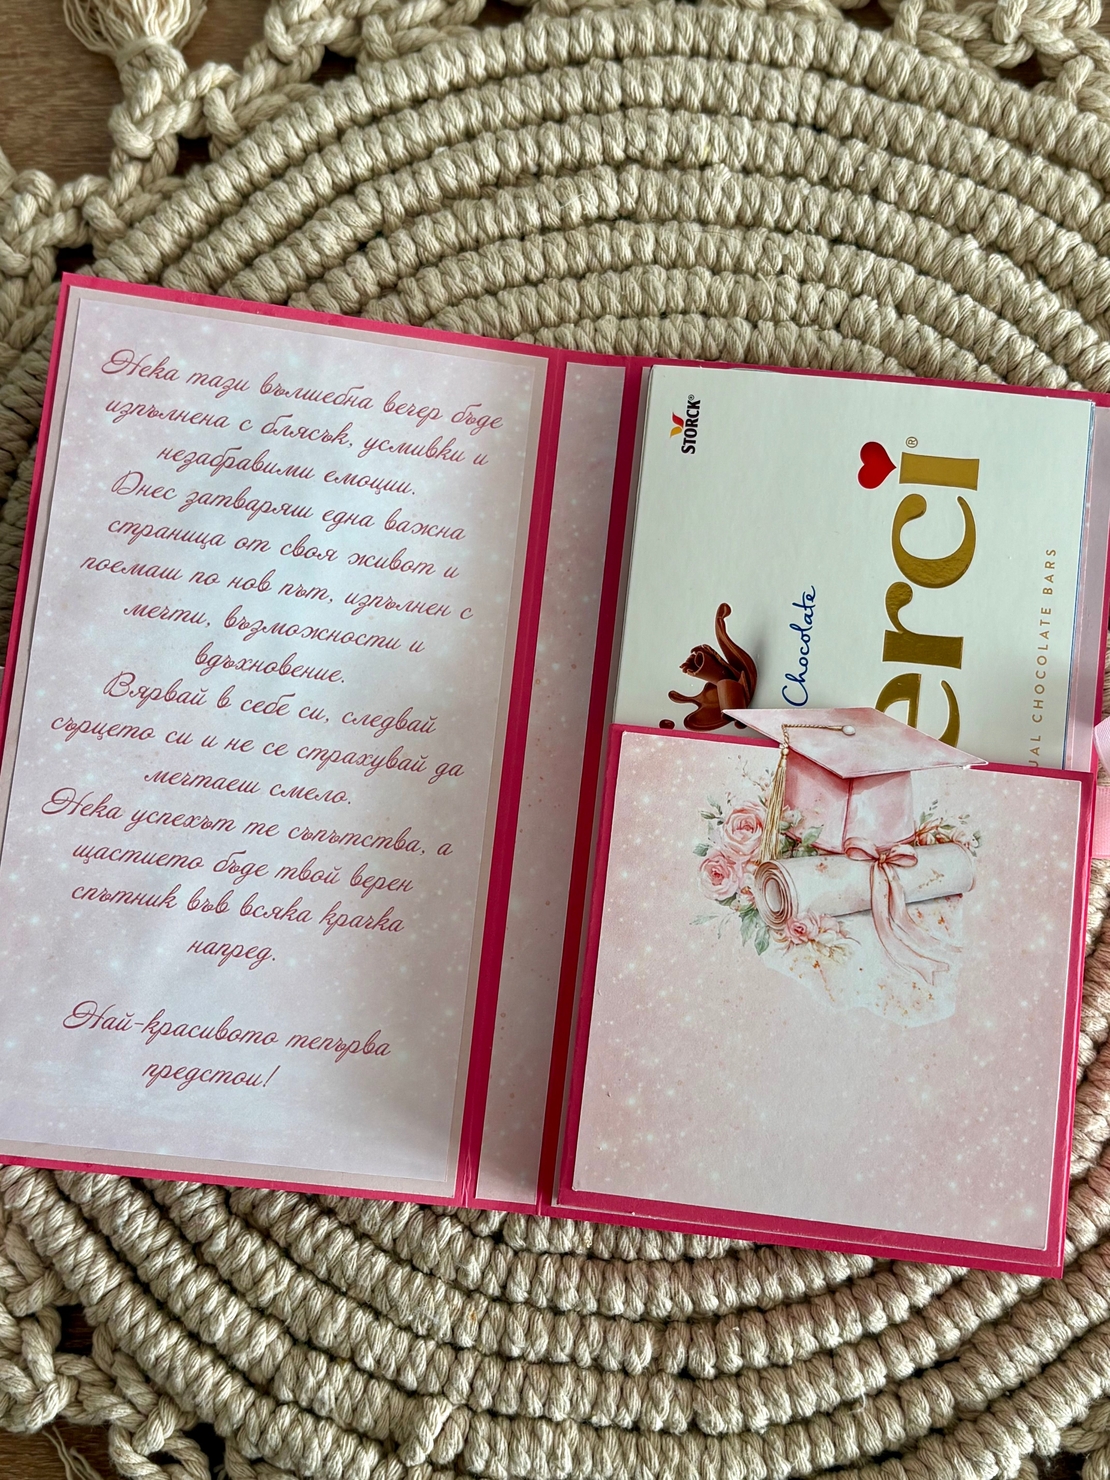 Нека тази вълшебна вечер бъде
изпълнена с блясък, усмивки и
незабравими емоции.
Днес затваряш една важна
страница от своя живот и
поемаш по нов път, изпълнен с
мечти, възможности и
вдъхновение.
Вярвай в себе си, следвай
сърцето си и не се страхувай да
мечтаеш смело.
Нека успехът те съпътства, а
щастието бъде твой верен
спътник във всяка крачка
напред.
Най-красивото тепърва
предстои!
STORCK®
Chocolate
erci®
UAL CHOCOLATE BARS